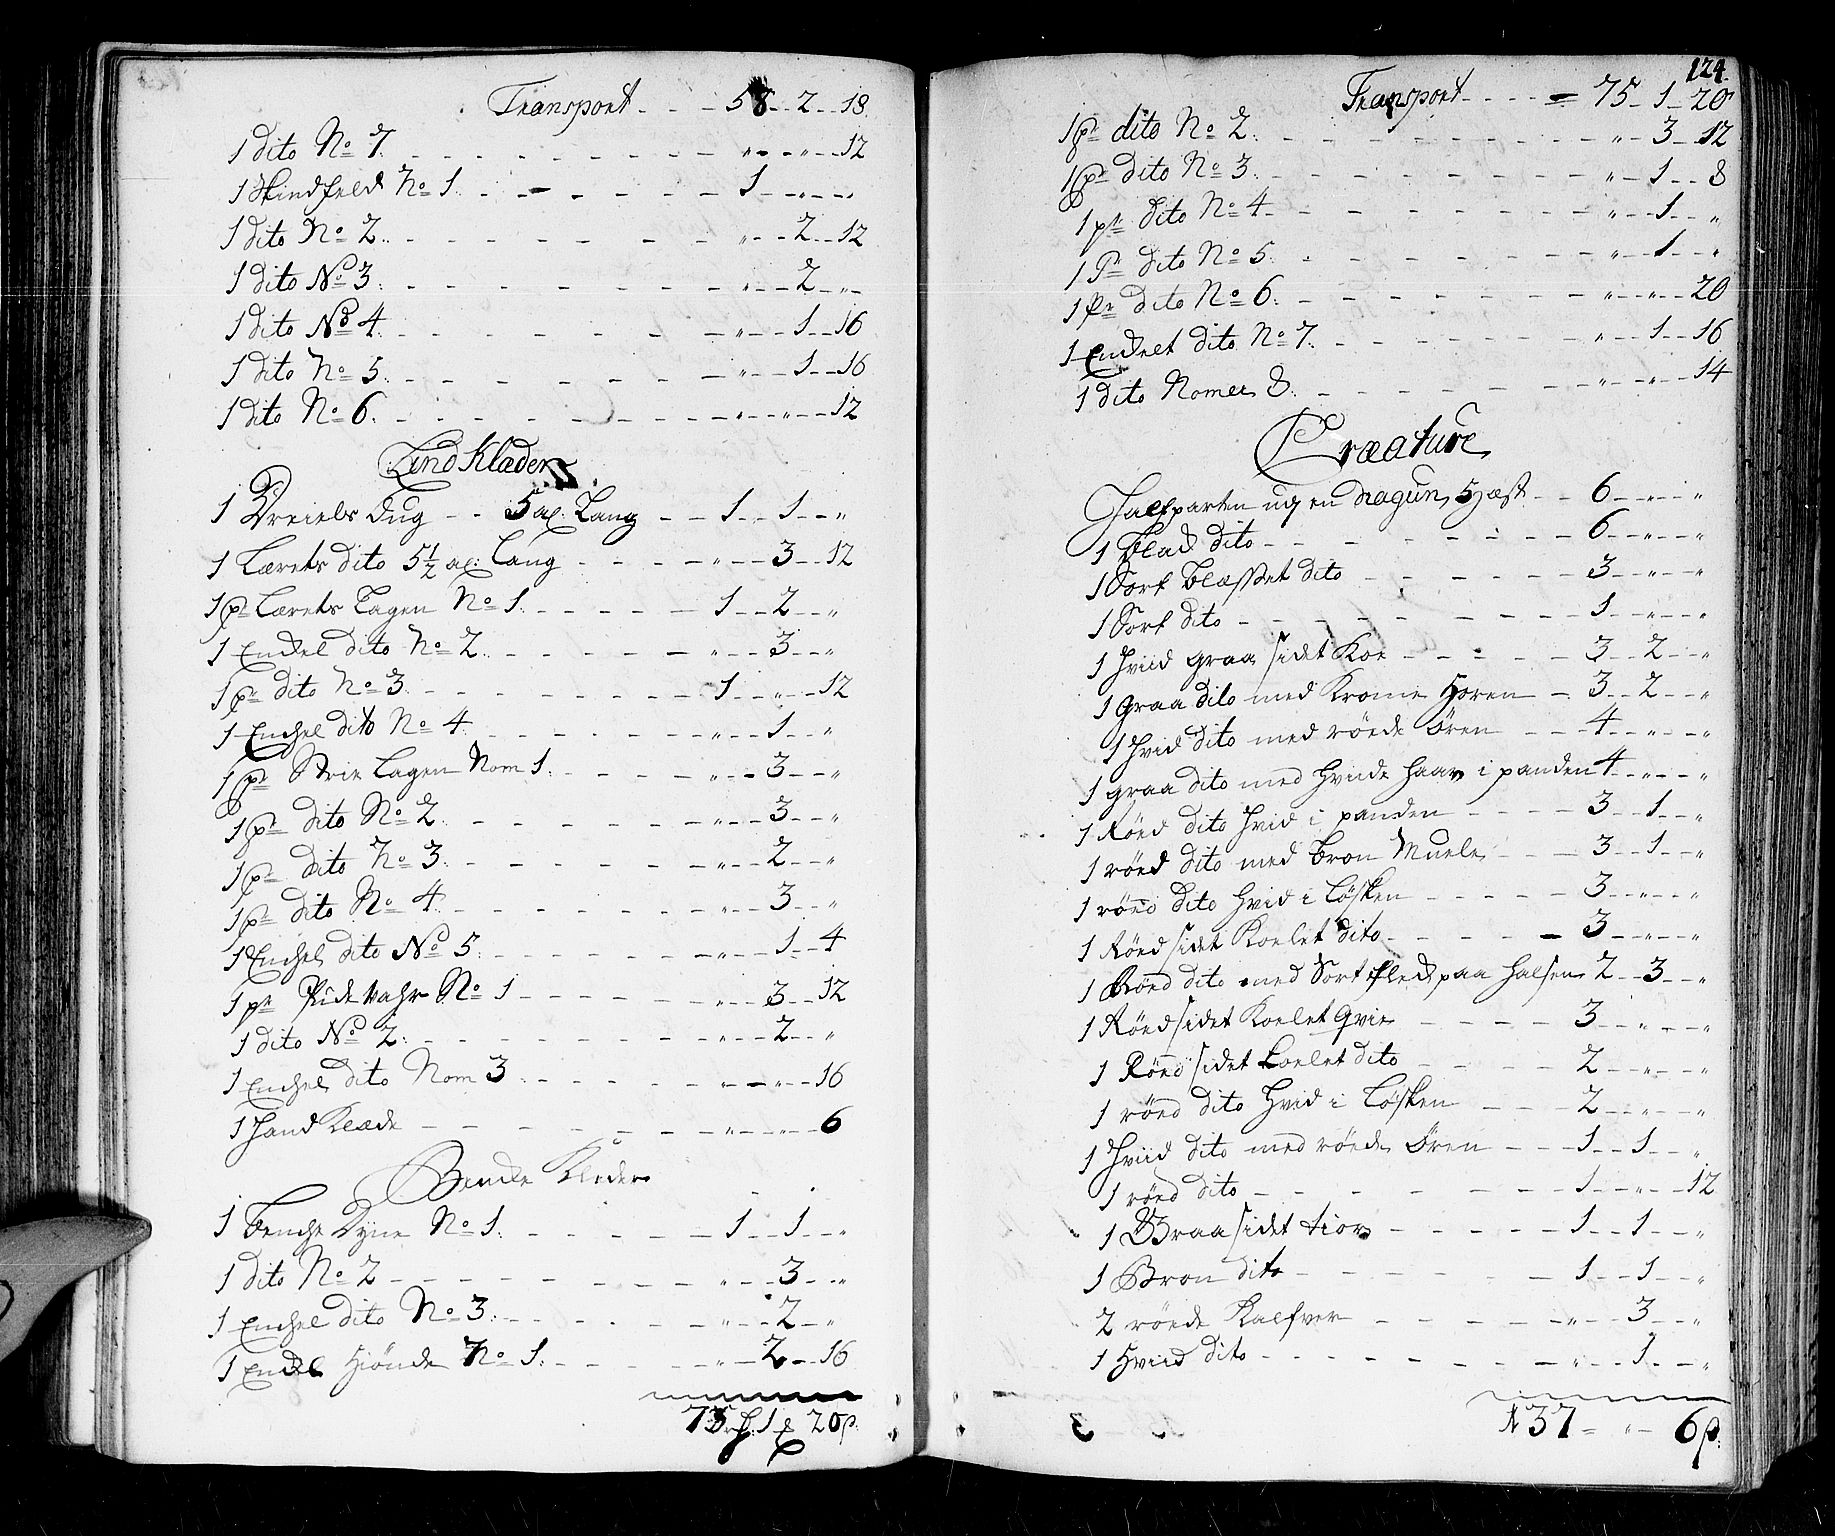 Transport - - - 58 - 2 - 18
1 dito No 7. - - - " - " - 12
1 Skindfeld No 1. - - - 1 - " - "
1 dito No 2. - - - " - 2 - 12
1 dito No 3. - - - " - 2 - "
1 dito No 4. - - - " - 1 - 16
1 dito No 5. - - - " - 1 - 16
1 dito No 6. - - - " - " - 12
Lind Klæder
1 Dreiels Dug - - 5 al. Lang - - 1 - 1 - "
1 Lærets dito 5 1/2 al: Lang - - - " - 3 - 12
1 pr Lærets Lagen No 1. - - - 1 - 2 - "
1 Enckel dito No 2. - - - " - 3 - "
1 pr dito No 3. - - - 1 - " - 12
1 Enchel dito No 4. - - - " - 1 - "
1 pr Strie Lagen Nom 1. - - - " - 3 - "
1 pr dito No 2. - - - " - 3 - "
1 pr dito No 3. - - - " - 2 - "
1 pr dito No 4. - - - " - 3 - "
1 Enchel dito No 5. - - - " - 1 - 4
1 pr Pude Vahr No 1 - - - " - 3 - 12
1 dito No 2. - - - " - 2 - "
1 Enchel dito Nom 3. - - - " - " - 16
1 Hand Klæde - - - " - " - 6
Bencke Klæder
1 Benche Dyne No 1. - - - 1 - 1 - "
1 dito No 2 - - - " - 3 - "
1 Enchel dito No 3. - - - " - 2 - "
1 Enckel Hiønde No 1. - - - " - 2 - 16
75 rd. 1 20 s.
124.
Transport - - - 75 - 1 - 20
1 pr dito No 2. - - - " - 3 - 12
1 pr dito No 3. - - - " - 1 - 8
1 pr dito No 4. - - - " - 1 - "
1 Pr dito No 5. - - - " - 1 - "
1 Pr dito No 6. - - - " - " - 20
1 Enckelt dito No 7. - - - " - 1 - 16
1 dito Nomer 8. - - - " - " - 14
Creature
Halfparten ug en dragun Hæst - - 6 - " - "
1 Blad dito - - - 6 - " - "
1 Sort Blæsset dito - - - 3 - " - "
1 Sort dito - - - 1 - " - "
1 Hviid graa sidet Koe - - - 3 - 2 - "
1 Graa dito med Krome Horen - 3 - 2 - "
1 Hvid dito med röede Øren - - 4 - " - "
1 graa dito med Hviide haar i panden 4 - " - "
1 Röed dito Hvid i panden - - - 3 - 1 - "
1 röed dito med Bron Muele - - - 3 - 1 - "
1 röed dito Hvid i Løsken - - - 3 - " - "
1 Röed sidet Koelet dito - - - 3 - " - "
1 Röed dito med Sort fleck paa Halsen 2 - 3 - "
1 Röed sidet Koelet Qvie - - - 3 - " - "
1 Röed sidet Koelet dito - - - 2 - " - "
1 röed dito Hvid i Løsken - - - 2 - " - "
1 Hviid dito med röede Øren - - - 1 - 1 - "
1 röed dito - - - 1 - " - 12
1 Graa sidet tior - - - 1 - 1 - "
1 Bron dito - - - 1 - 1 - "
2 röede Kalfver - - - " - 3 - "
1 Hviid dito - - - " - 1 - "
137 - " - 6 s.